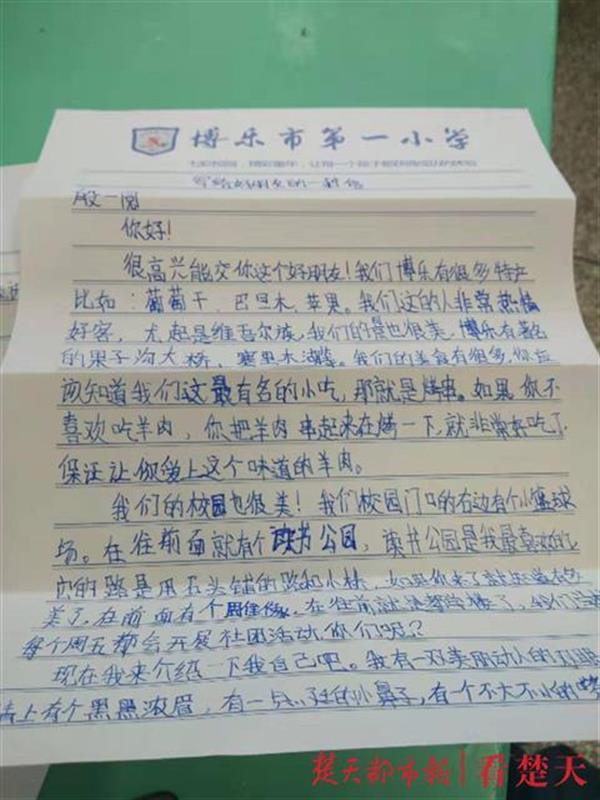 博乐市第一小学
写给好朋友的一封信
殷一阅
你好!
很高兴能交你这个好朋友!我们博乐有很多特产
比如:葡萄干、巴旦木、苹果。我们这的人非常热情
好客,尤起是维吾尔族,我们的景也很美,博乐有著名
的果子沟大桥、赛里木湖等。我们的美食有很多,你应
该知道我们这最有名的小吃,那就是烤串。如果你不
喜欢吃羊肉,你把羊肉串起来在烤一下,就非常好吃了
保证让你爱上这个味道的羊肉。
我们的校园也很美!我们校园门口的右边有个小篮球
场。在往前面就有个读书公园,读书公园是我最喜欢的,
的路是用石头铺的路和小桥,如果你来了就
美了,在前面有个周佳像。在往前就是教学楼了,我们
每个周五都会开展社团活动,你们呢?
现在我来介绍一下我自己吧。我有一双美丽动人的
睛上有个黑黑浓眉,有一只小巧的小鼻子,有个不大不小的嘴
楚天都市报|看楚天